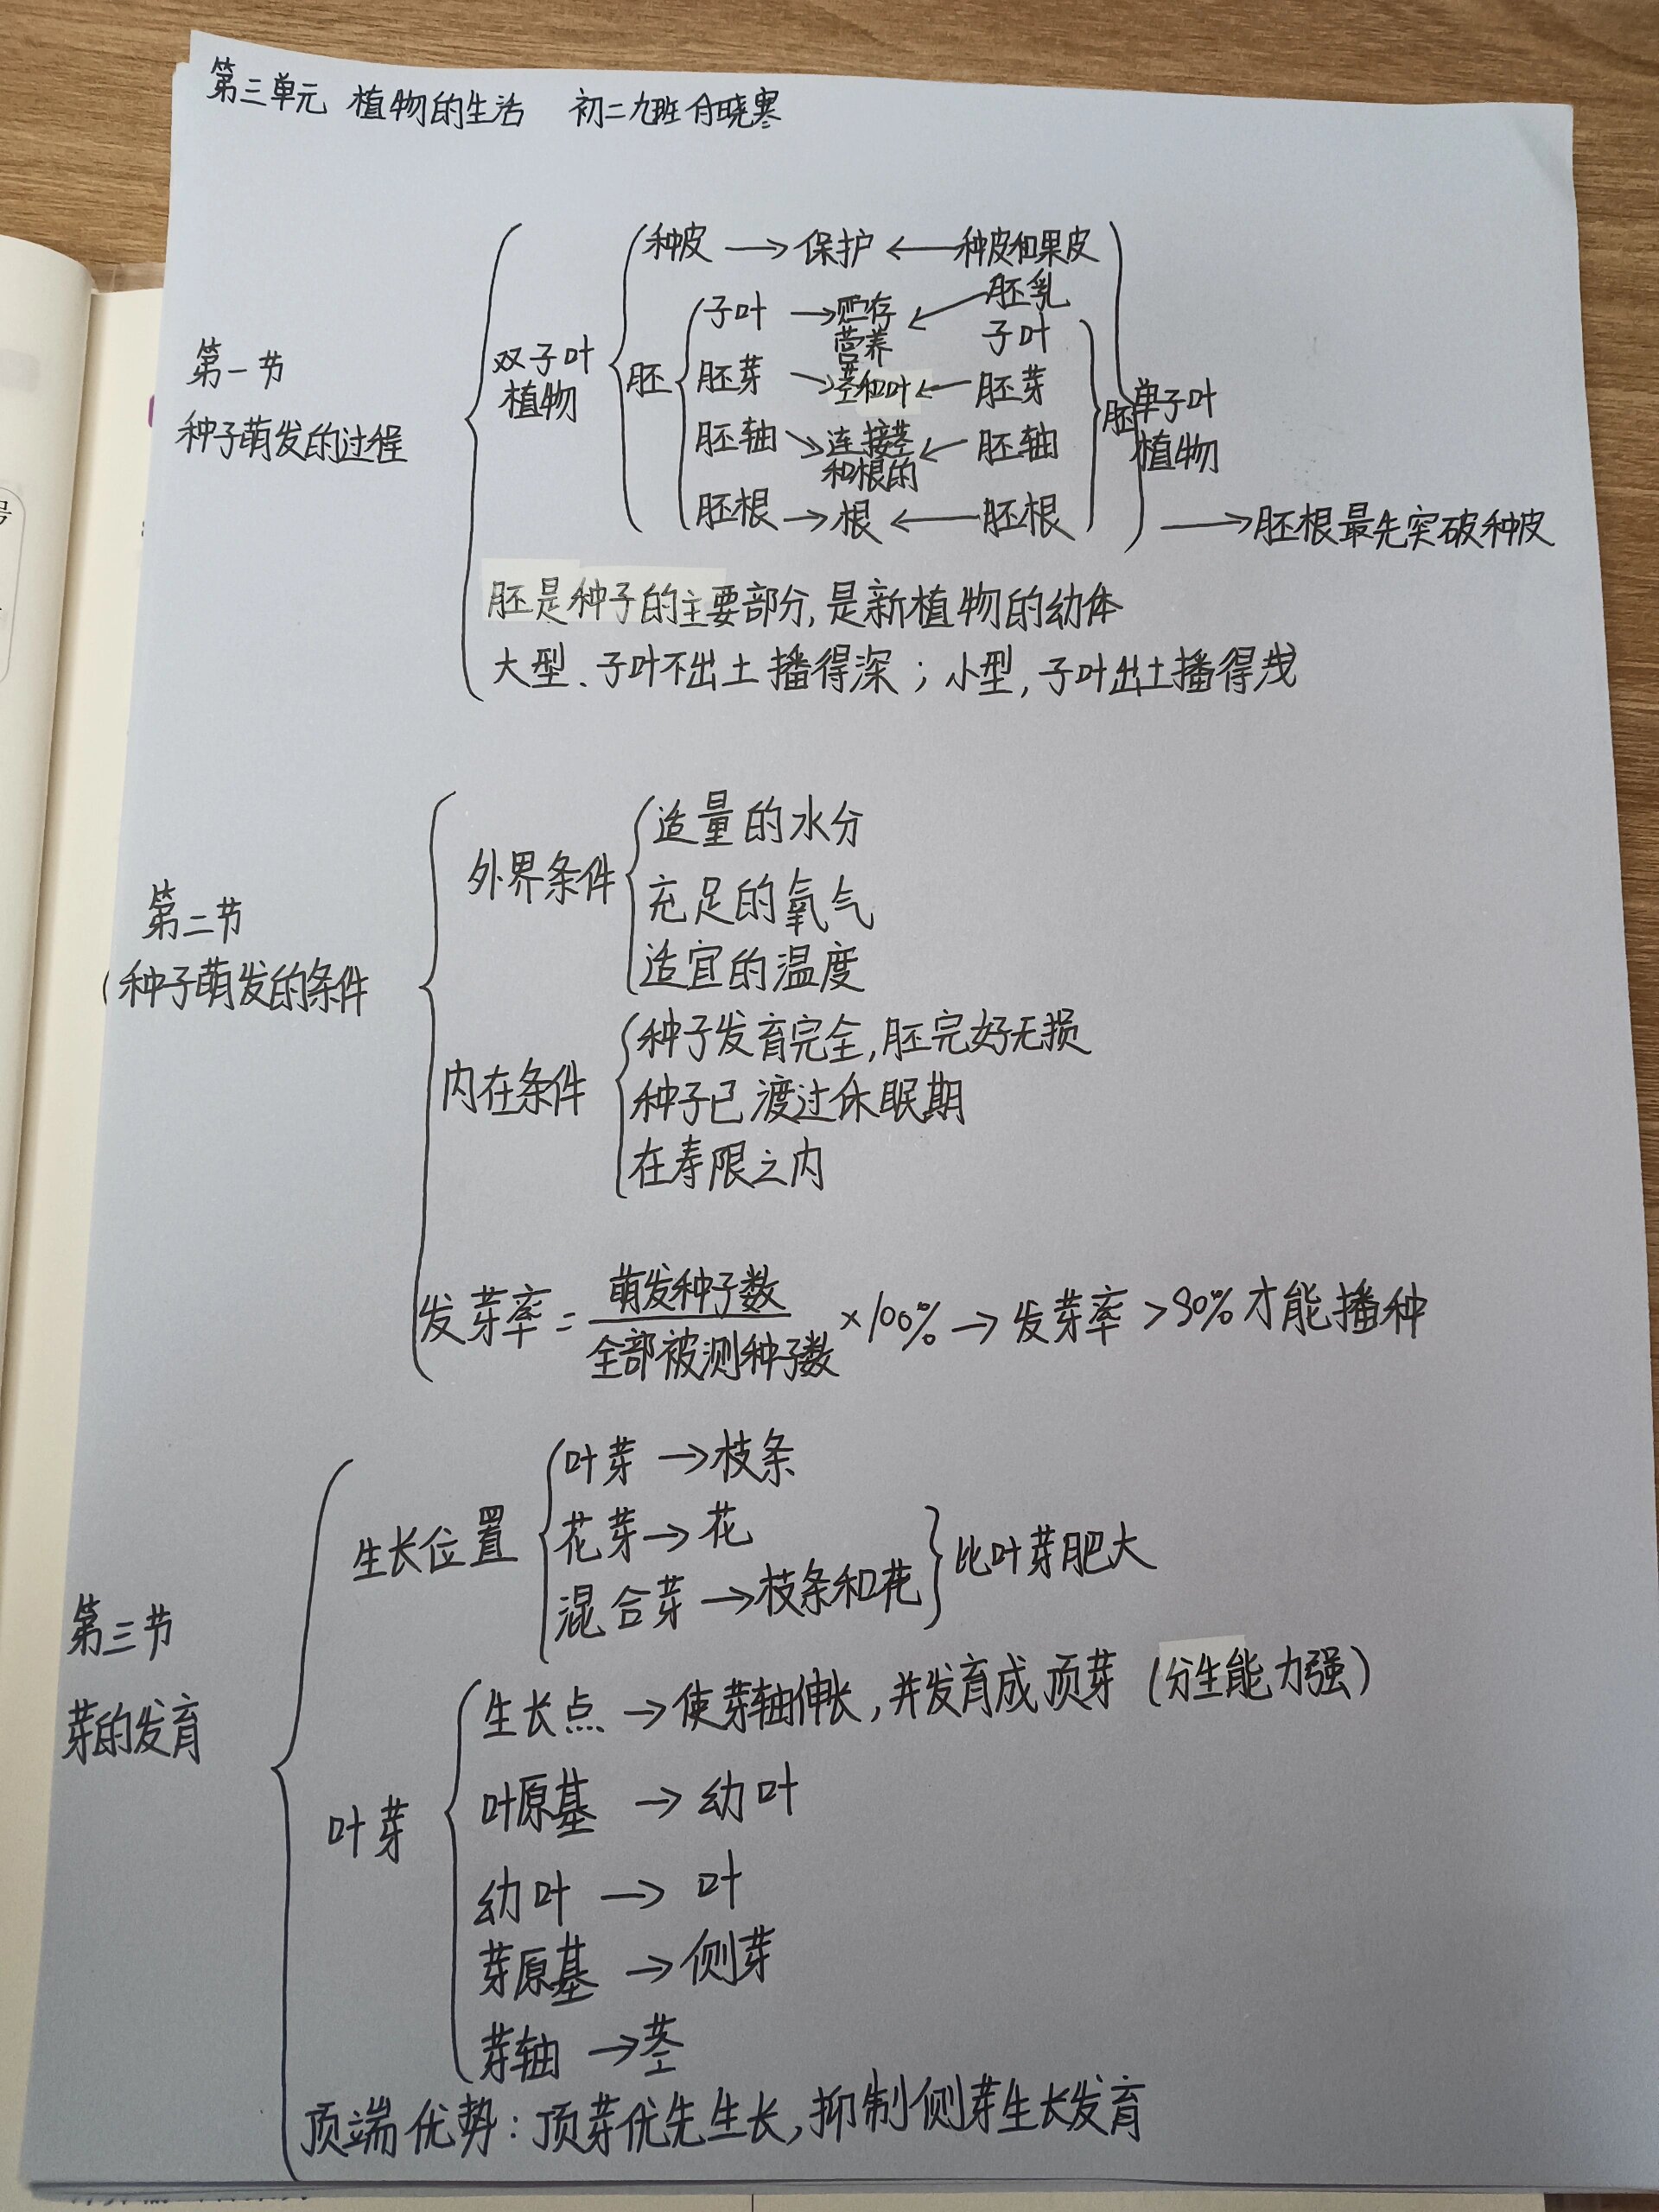 第三单元 植物的生活 初二九班 付晓寒
第一节
种子萌发的过程
双子叶
植物
种皮 → 保护 ← 种皮和果皮
胚
子叶 → 贮存
营养
← 胚乳
子叶
胚芽 → 茎和叶 ← 胚芽
胚轴 → 连接茎
和根的
← 胚轴
胚根 → 根 ← 胚根
胚
单子叶
植物
→ 胚根最先突破种皮
胚是种子的主要部分,是新植物的幼体
大型、子叶不出土播得深;小型,子叶出土播得浅
第二节
种子萌发的条件
外界条件
适量的水分
充足的氧气
适宜的温度
内在条件
种子发育完全,胚完好无损
种子已渡过休眠期
在寿限之内
发芽率 = 萌发种子数
全部被测种子数
×100% → 发芽率 >90% 才能播种
第三节
芽的发育
生长位置
叶芽 → 枝条
花芽 → 花
混合芽 → 枝条和花
比叶芽肥大
叶芽
生长点 → 使芽轴伸长,并发育成顶芽 (分生能力强)
叶原基 → 幼叶
幼叶 → 叶
芽原基 → 侧芽
芽轴 → 茎
顶端优势:顶芽优先生长,抑制侧芽生长发育